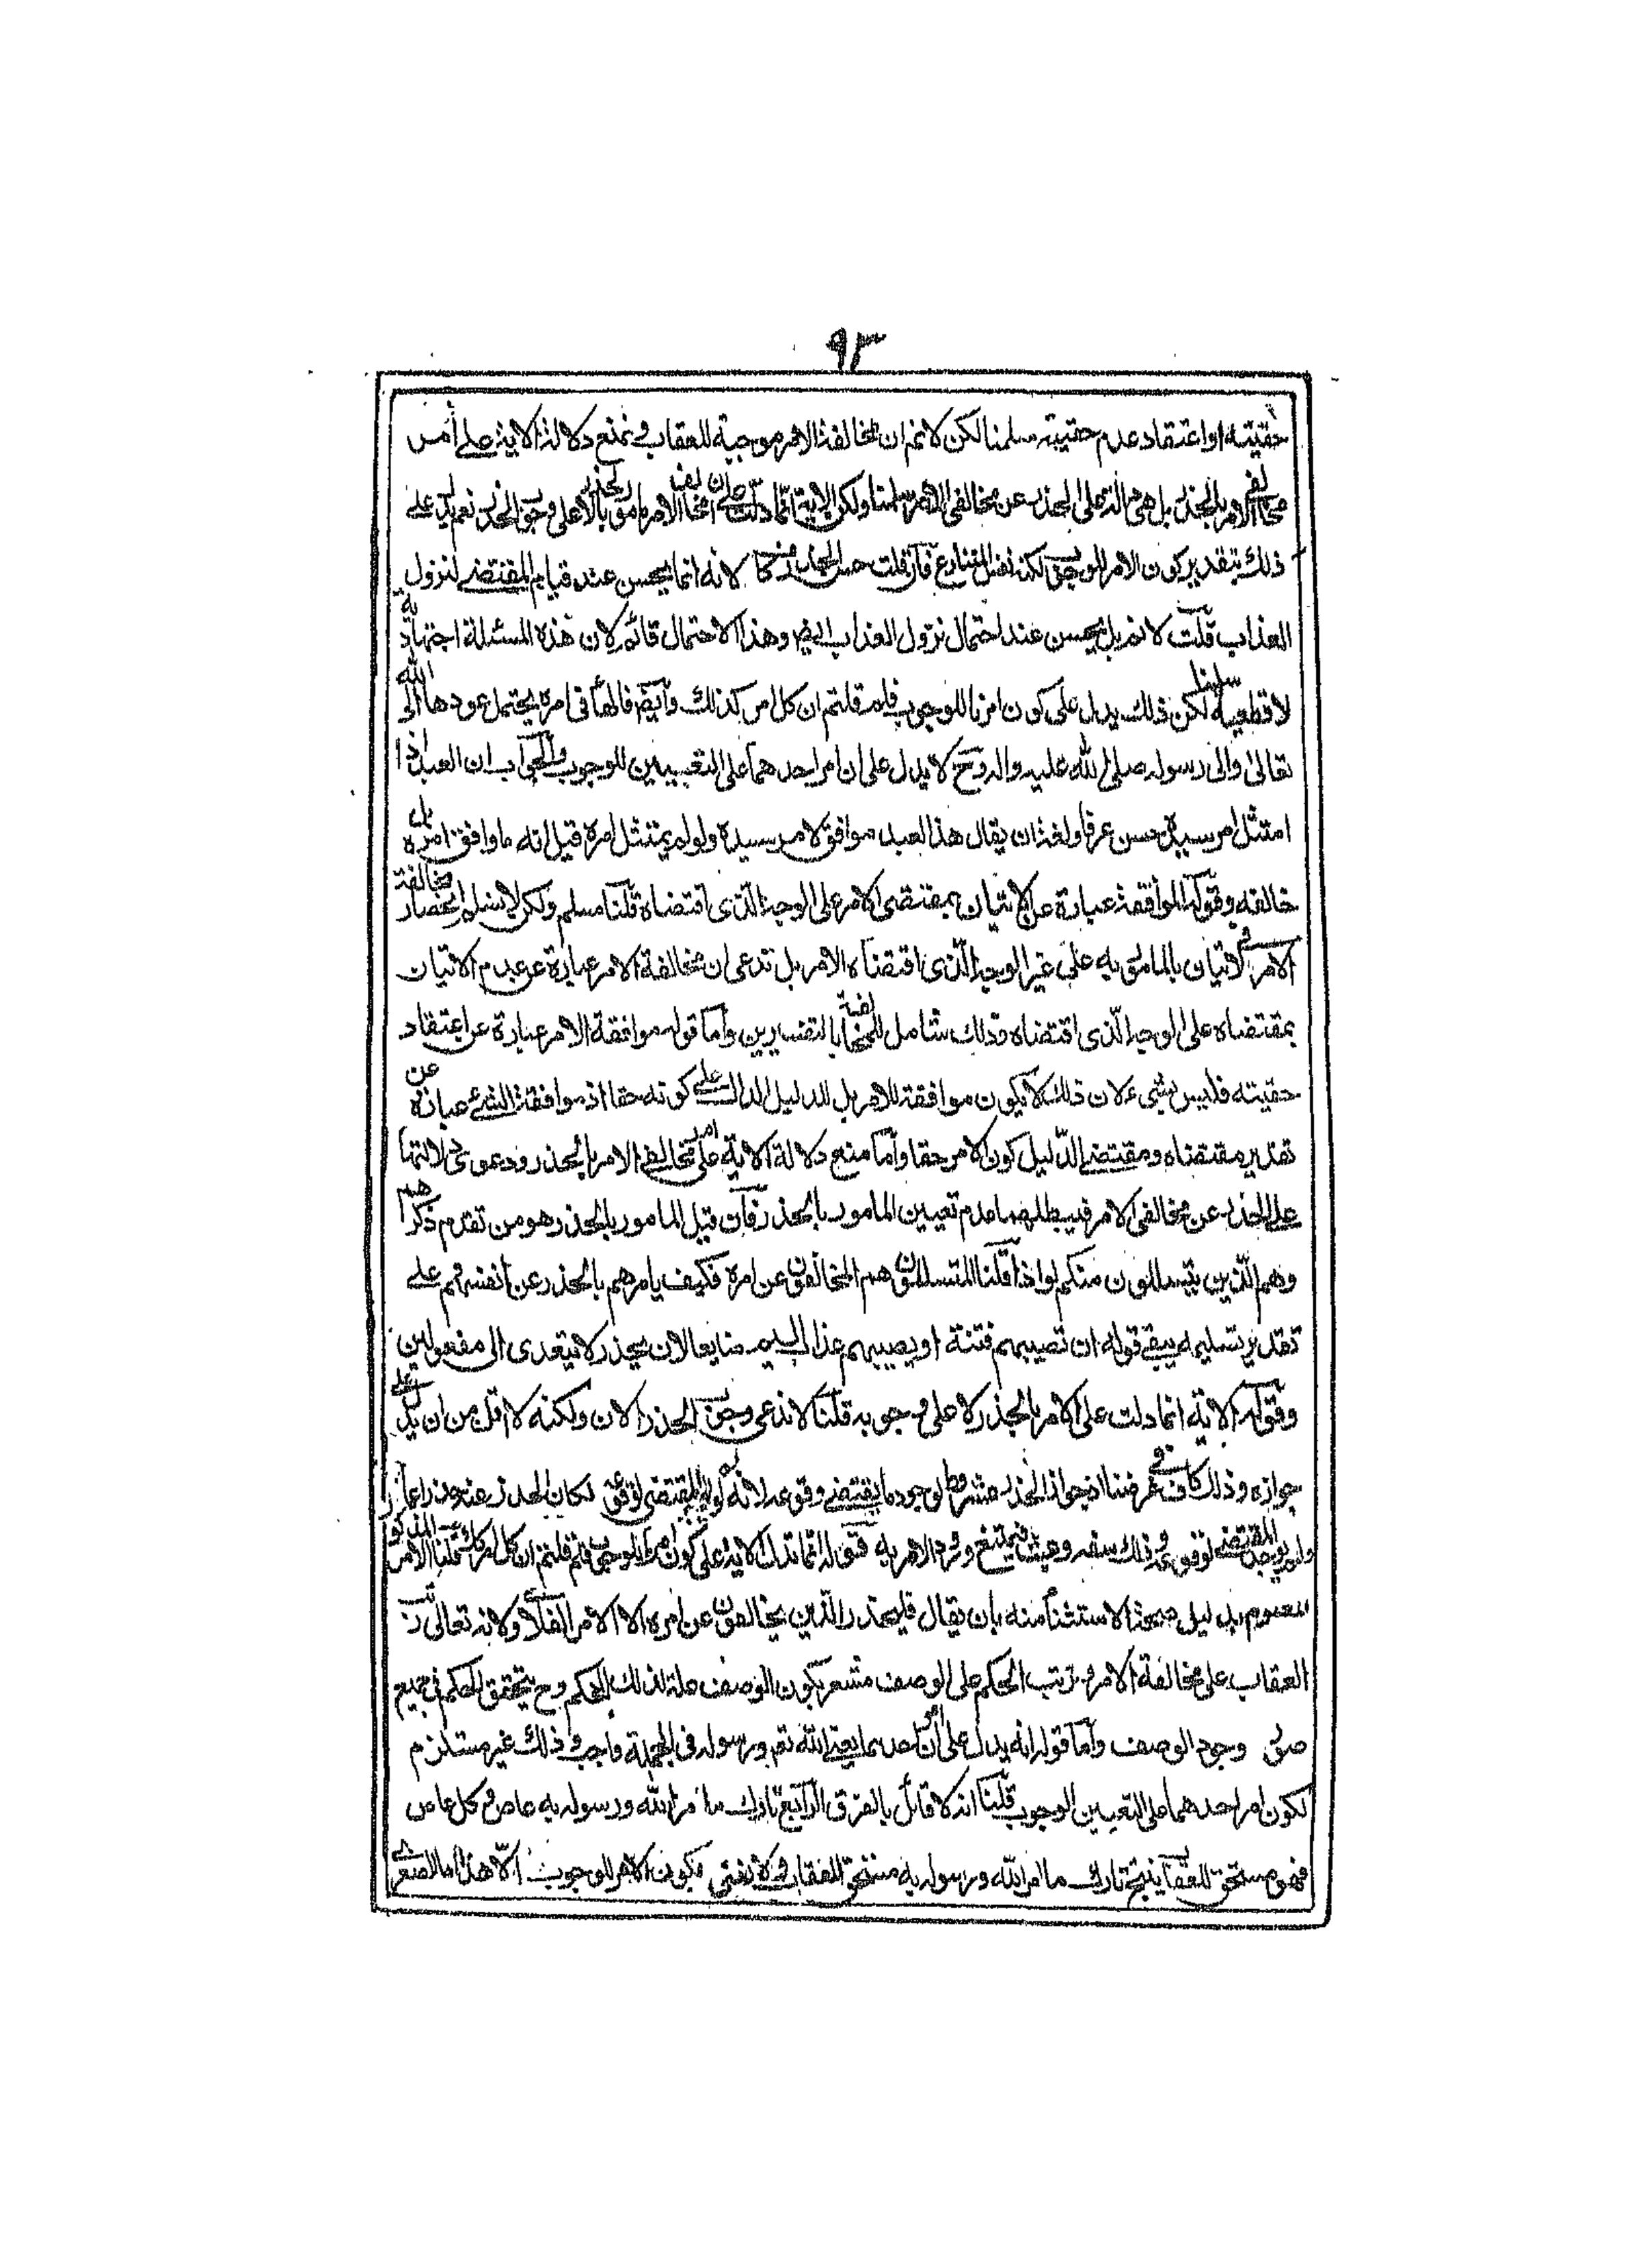 ٩٣
حقيته او اعتقاد عدم حقيته سلمنا لكن لا نم ان مخالفة الامر موجبة للعقاب و نمنع دلالة الاية على أمر
مخالف الامر بالحذر بل هى دالة على الحذر عن مخالفى الامر سلمنا ولكن الاية انما دلت على ان مخالف الامر مامور بالحذر لا على وجوب الحذر نعم يدل على
ذلك بتقدير كون الامر للوجوب لكنه نفس المتنازع فان قلت حسن الحذر لانه انما يحسن عند قيام المقتضى لنزول
العذاب قلت لا نم بل يحسن عند احتمال نزول العذاب ايضا وهذا الاحتمال قائم لان هذه المسئلة اجتهادية
لا قطعية سلمنا لكن ذلك يدل على كون امره للوجوب فلم قلتم ان كل امر كذلك وايضا فالهاء فى امره يحتمل عودها الى الله
تعالى والى رسوله صلى الله عليه واله وح لا يدل على ان امر احدهما على التعيين للوجوب والجواب ان العبد اذا
امتثل امر سيده حسن عرفا ولغة ان يقال هذا العبد موافق لامر سيده ولو لم يمتثل امره قيل انه ما وافق امره بل
خالفه وقوله الموافقة عبارة عن الاتيان بمقتضى الامر على الوجه الذى اقتضاه قلنا مسلم ولكن لا نسلم انحصار مخالفة
الامر فى الاتيان بالمامور به على غير الوجه الذى اقتضاه الامر بل ندعى ان مخالفة الامر عبارة عن عدم الاتيان
بمقتضاه على الوجه الذى اقتضاه وذلك شامل للمخالفة بالتفسيرين واما قوله موافقة الامر عبارة عن اعتقاد
حقيته فليس بشىء لان ذلك لا يكون موافقة للامر بل للدليل الدال على كونه حقا اذ موافقة الشئ عبارة عن
تقدير مقتضاه ومقتضى الدليل كون الامر حقا واما منع دلالة الاية على امر مخالف الامر بالحذر ودعوى دلالتها
على الحذر عن مخالفى الامر فيبطلهما عدم تعيين المامور بالحذر فان قيل المامور بالحذر هو من تقدم ذكرهم
وهم الذين يتسللون منكم لواذا قلنا المتسللون هم المخالفون عن امره فكيف يامرهم بالحذر عن انفسهم على
تقدير تسليمه يبقى قوله ان تصيبهم فتنة او يصيبهم عذاب اليم ضايعا لان يحذر لا يتعدى الى مفعولين
وقوله الاية انما دلت على الامر بالحذر لا على وجوبه قلنا لا ندعى وجوب الحذر الان ولكنه لا اقل من ان يدل على
جوازه وذلك كاف فى غرضنا اذ جواز الحذر مشروط لوجود ما يقتضى وقوعه لانه لو لم المقتضى لوقوعه لكان الحذر عنه حذرا عما
ولم يوجد المقتضى لوقوعه وذلك سفه وعبث فيمتنع ورود الامر به قوله انما تدل الاية على كون امره للوجوب فلم قلتم ان كل امر كك قلنا الامر المذكور
للعموم بدليل صحة الاستثناء منه بان يقال فليحذر الذين يخالفون عن امره الا الامر الفلانى ولانه تعالى رتب
العقاب على مخالفة الامر وترتب الحكم على الوصف مشعر بكون الوصف علة لذلك الحكم وح يتحقق الحكم فى جميع
صور وجود الوصف واما قوله انه يدل على ان امر احدهما يعنى الله تعم ورسوله فى الجملة واجب وذلك غير مستلزم
لكون امر احدهما على التعيين للوجوب قلنا انه لا قائل بالفرق الرابع تارك ما امر الله ورسوله به عاص وكل عاص
فهو مستحق للعقاب ينتج تارك ما امر الله ورسوله به مستحق للعقاب ولا نعنى بكون الامر للوجوب الا هذا اما الصغرى